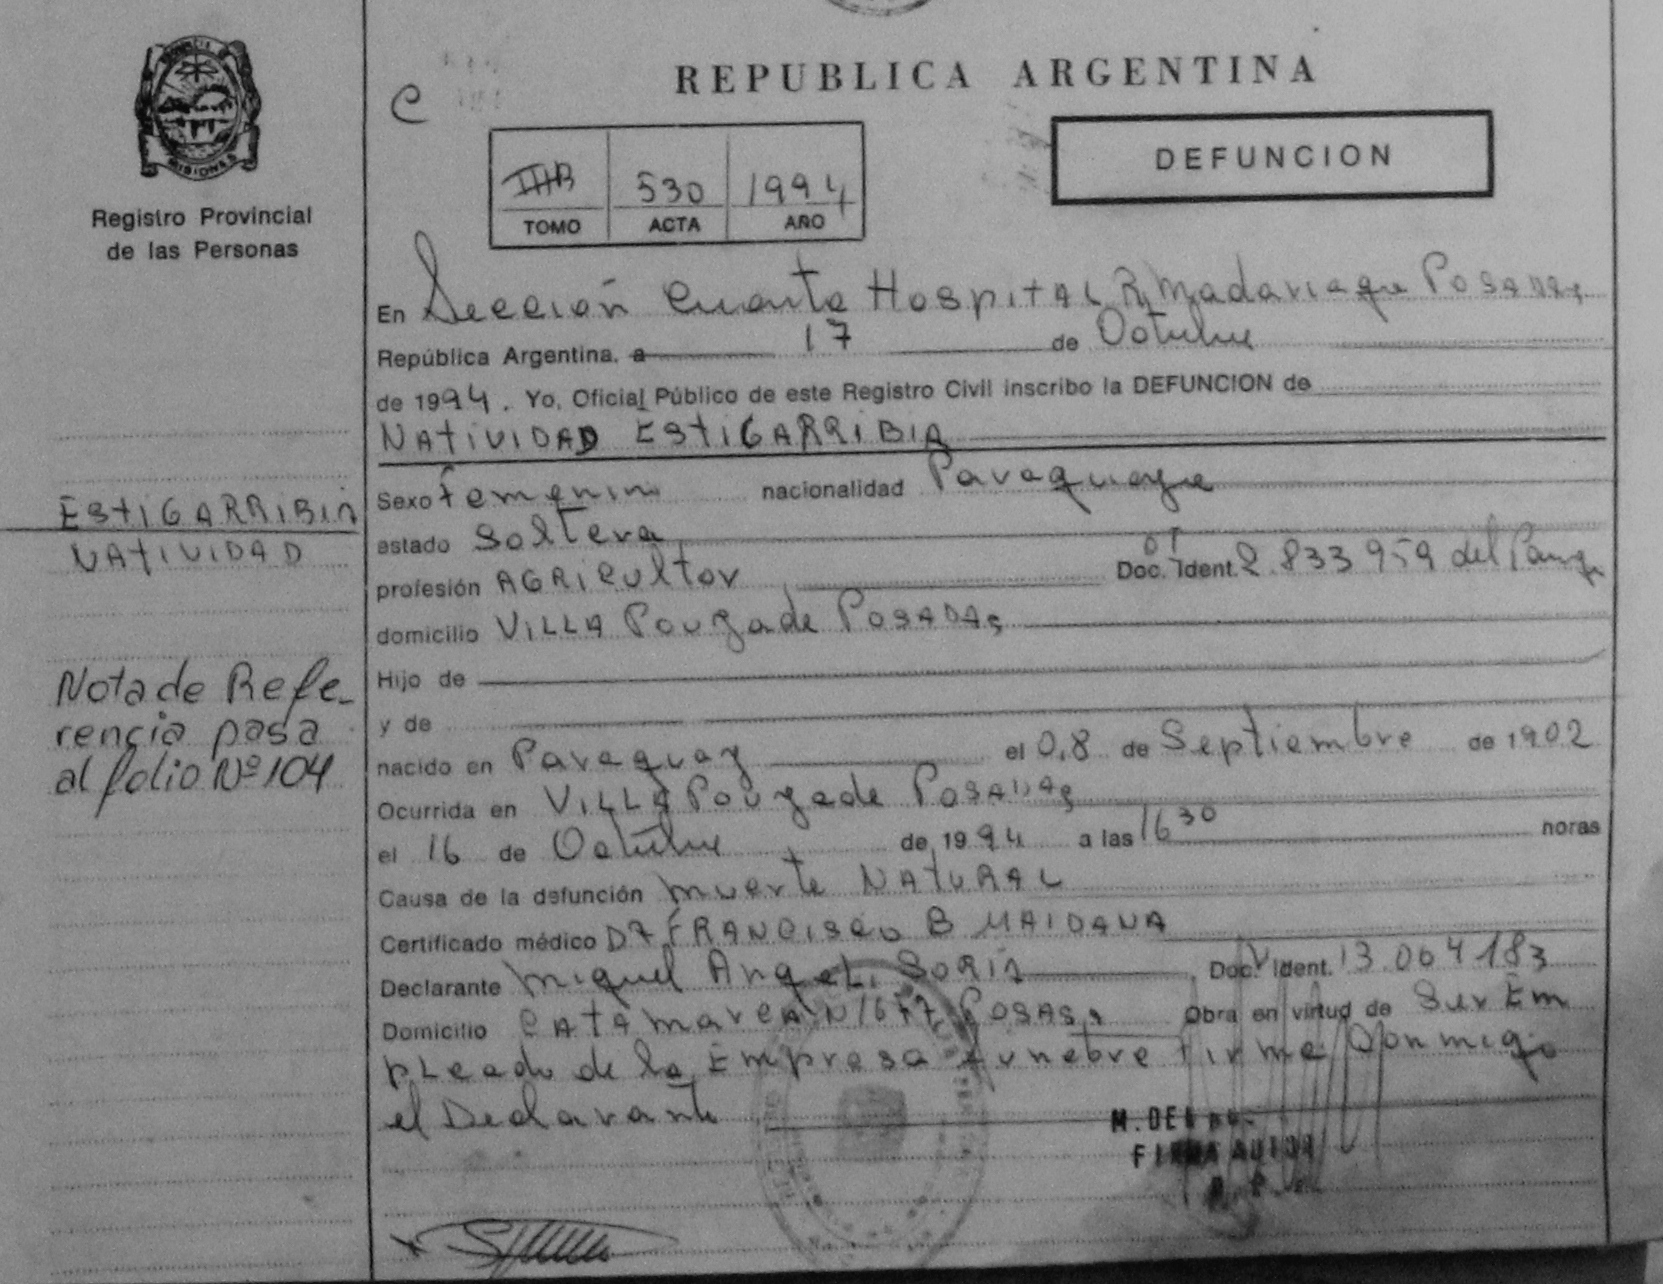 REPUBLICA ARGENTINA
C
DEFUNCION
530 1994
TOMO ACTA AÑO
MISIONES
Registro Provincial
de las Personas
En Sección Cuarta Hospital R. Madariaga Posadas
República Argentina, a 17 de Octubre
de 1994. Yo, Oficial Público de este Registro Civil inscribo la DEFUNCION de
NATIVIDAD ESTIGARRIBIA
Sexo femenino nacionalidad Paraguaya
estado Soltera
profesión AGRICULTOR Doc. Ident. 2.833959 del
domicilio VILLA Pouyade POSADAS
Hijo de
y de
nacido en Paraguay el 0,8 de Septiembre de 1902
Ocurrida en VILLA Pouyade POSADAS
el 16 de Octubre de 1994 a las 16 30 horas
Causa de la defunción muerte NATURAL
Certificado médico DR FRANCISCO B MAIDANA
Declarante Miguel Angel SORIA Doc. Ident. 13.004183
Domicilio CATAMARCA N 1677 POSAS Obra en virtud de Ser Em
pleado de la Empresa funebre firma Conmigo
el Declarante
ESTIGARRIBIA
NATIVIDAD
Nota de Refe-
rencia pasa
al folio Nº 104